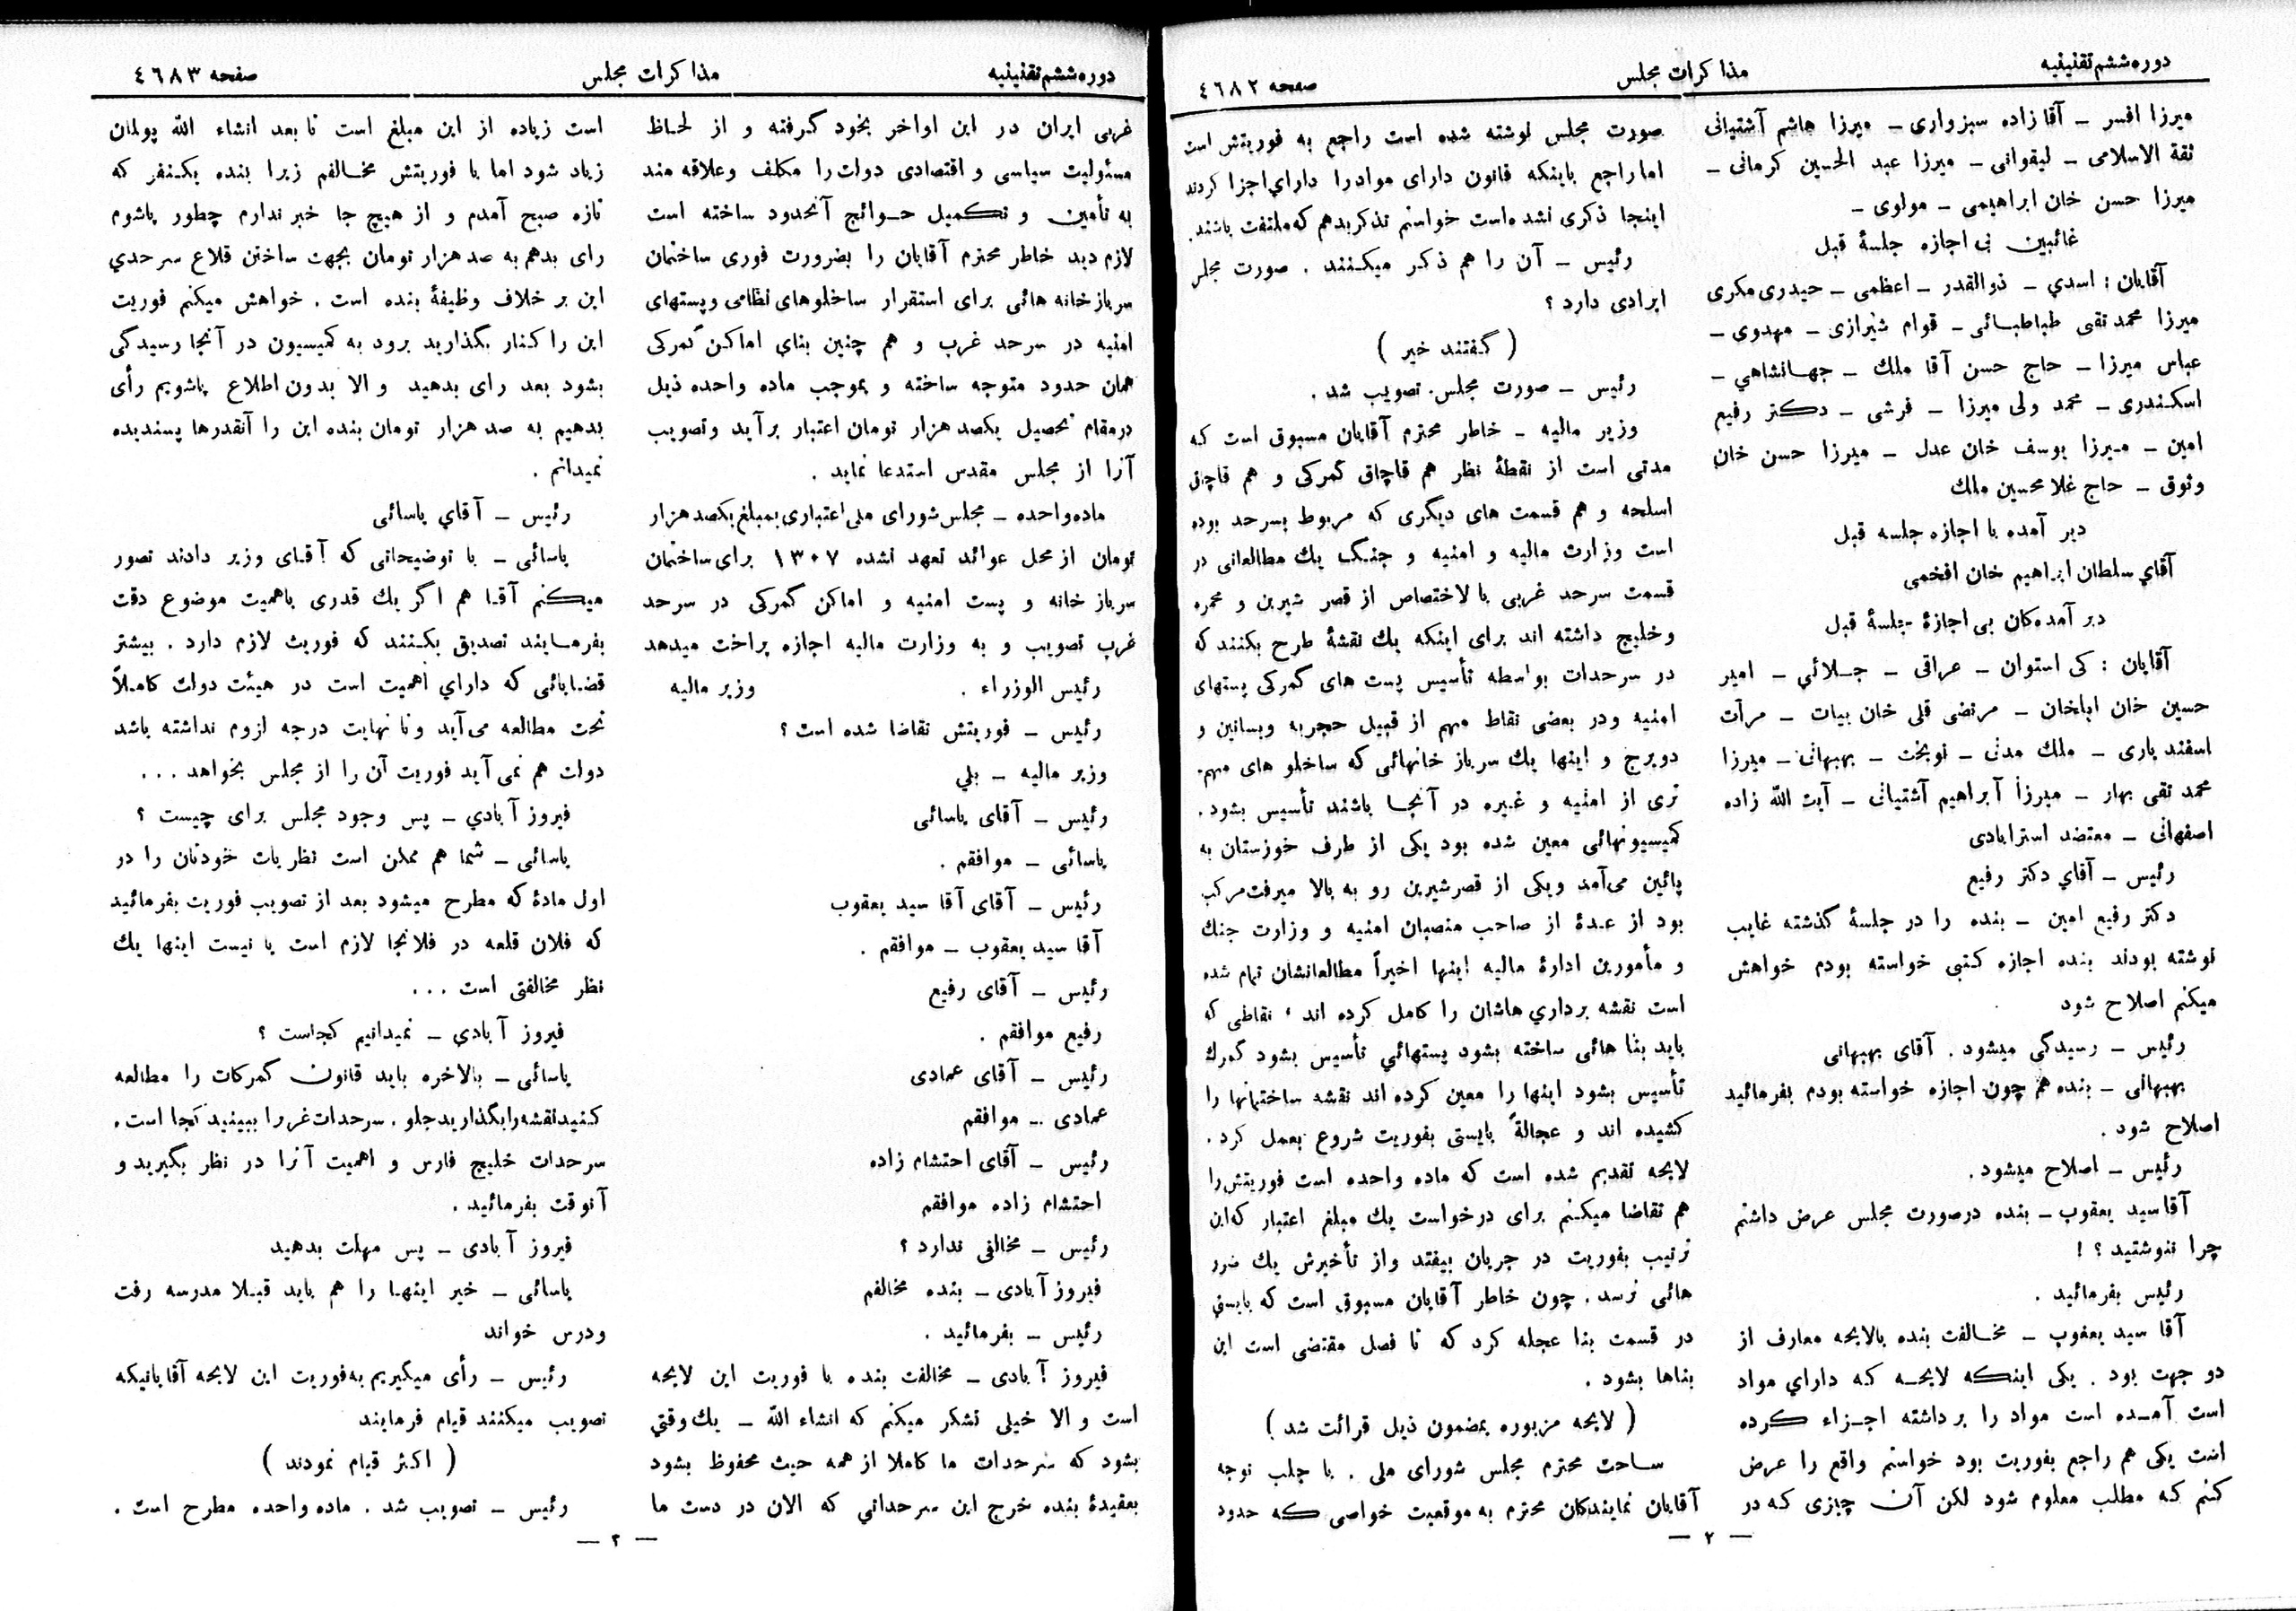 دوره‌ششم‌تقنینیه
مذاکرات مجلس
صفحه ٤٦٨٢
میرزا افسر ـ آقا زاده سبزواری ـ میرزا هاشم آشتیانی
ثقة الاسلامی ـ لیقوانی ـ میرزا عبد الحسین کرمانی ـ
میرزا حسن خان ابراهیمی ـ مولوی ـ
غائبین بی اجازه جلسهٔ قبل
آقایان : اسدي ـ ذوالقدر ـ اعظمی ـ حیدری مکری
میرزا محمد تقی طباطبائی ـ قوام شیرازی ـ مهدوی ـ
عباس میرزا ـ حاج حسن آقا ملك ـ جهانشاهي ـ
اسکندری ـ محمد ولی میرزا ـ فرشی ـ دکتر رفیع
امین ـ میرزا یوسف خان عدل ـ میرزا حسن خان
وثوق ـ حاج غلامحسین ملك
دیر آمده با اجازه جلسه قبل
آقاي سلطان ابراهیم خان افخمی
دیر آمده‌کان بی اجازهٔ جلسهٔ قبل
آقایان : کی استوان ـ عراقی ـ جلائي ـ امیر
حسین خان ایلخان ـ مرتضی قلی خان بیات ـ مرآت
اسفندیاری ـ ملك مدنی ـ نوبخت ـ بهبهانی ـ میرزا
محمد تقی بهار ـ میرزا آبراهیم آشتیانی ـ آیت الله زاده
اصفهانی ـ معتضد استرابادی
رئیس ـ آقاي دکتر رفیع
دکتر رفیع امین ـ بنده را در جلسهٔ گذشته غایب
نوشته بودند بنده اجازه کتبی خواسته بودم خواهش
میکنم اصلاح شود
رئیس ـ رسیدگی میشود . آقای بهبهانی
بهبهانی ـ بنده هم چون اجازه خواسته بودم بفرمائید
اصلاح شود .
رئیس ـ اصلاح میشود .
آقا سید یعقوب ـ بنده درصورت مجلس عرض داشتم
چرا ننوشتید ؟ !
رئیس بفرمائید .
آقا سید یعقوب ـ مخالفت بنده بالایحه معارف از
دو جهت بود . یکی اینکه لایحه که داراي مواد
است آمده است مواد را برداشته اجزاء کرده
است یکی هم راجع بفوریت بود خواستم واقع را عرض
کنم که مطلب معلوم شود لکن آن چیزی که در
صورت مجلس نوشته شده است راجع به فوریتش است
اما راجع باینکه قانون دارای مواد را داراي اجزا کردند
اینجا ذکری نشده‌است خواستم تذکر بدهم که ملتفت باشند.
رئیس ـ آن را هم ذکر میکنند . صورت مجلس
ایرادی دارد ؟
( گفتند خیر )
رئیس ـ صورت مجلس. تصویب شد .
وزیر مالیه ـ خاطر محترم آقایان مسبوق است که
مدتی است از نقطهٔ نظر هم قاچاق گمرکی و هم قاچاق
اسلحه و هم قسمت های دیگری که مربوط بسرحد بوده
است وزارت مالیه و امنیه و جنگ یك مطالعاتی در
قسمت سرحد غربی بالاختصاص از قصر شیرین و محمره
وخلیج داشته اند برای اینکه یك نقشهٔ طرح بکنند که
در سرحدات بواسطه تأسیس پست های گمرکی پستهای
امنیه ودر بعضی نقاط مهم از قبیل حجریه وبساتین و
دویرج و اینها یك سرباز خانهائی که ساخلو های مهم.
تری از امنیه و غیره در آنجا باشند تأسیس بشود .
کمیسیونهائی معین شده بود یکی از طرف خوزستان به
پائین می‌آمد ویکی از قصرشیرین رو به بالا میرفت مرکب
بود از عدهٔ از صاحب منصبان امنیه و وزارت جنك
و مأمورین ادارهٔ مالیه اینها اخیراً مطالعاتشان تمام شده
است نقشه برداري هاشان را کامل کرده اند ، نقاطی که
باید بنا هائی ساخته بشود پستهائي تأسیس بشود گمرك
تأسیس بشود اینها را معین کرده اند نقشه ساختمانها را
کشیده اند و عجالةً بایستی بفوریت شروع بعمل کرد .
لایحه تقدیم شده است که ماده واحده است فوریتش را
هم تقاضا میکنم برای درخواست یك مبلغ اعتبار که‌این
ترتیب بفوریت در جریان بیفتد واز تأخیرش یك ضرر
هائی نرسد . چون خاطر آقایان مسبوق است که بایستی
در قسمت بنا عجله کرد که تا فصل مقتضی است این
بناها بشود .
( لایحه مزبوره بمضمون ذیل قرائت شد )
ساحت محترم مجلس شورای ملی . با جلب توجه
آقایان نمایندکان محترم به موقعیت خواصی که حدود
— ٢ —
دوره‌ششم‌تقنینیه
مذاکرات مجلس
صفحه ٤٦٨٣
غربی ایران در این اواخر بخود گرفته و از لحاظ
مسئولیت سیاسی و اقتصادی دولت را مکلف وعلاقه مند
به تأمین و تکمیل حوائج آنحدود ساخته است
لازم دید خاطر محترم آقایان را بضرورت فوری ساختمان
سرباز خانه هائی برای استقرار ساخلوهای نظامی وپستهای
امنیه در سرحد غرب و هم چنین بنای اماکن گمرکی
همان حدود متوجه ساخته و بموجب ماده واحده ذیل
درمقام تحصیل یکصد هزار تومان اعتبار برآید وتصویب
آنرا از مجلس مقدس استدعا نماید .
ماده‌واحده ـ مجلس شورای ملی اعتباری بمبلغ یکصد هزار
تومان از محل عوائد تعهد نشده ١٣٠٧ برای ساختمان
سرباز خانه و پست امنیه و اماکن گمرکی در سرحد
غرب تصویب و به وزارت مالیه اجازه پراخت میدهد
رئیس الوزراء . وزیر مالیه
رئیس ـ فوریتش تقاضا شده است ؟
وزیر مالیه ـ بلي
رئیس ـ آقای یاسائی
یاسائی ـ موافقم .
رئیس ـ آقای آقا سید یعقوب
آقا سید یعقوب ـ موافقم .
رئیس ـ آقای رفیع
رفیع موافقم .
رئیس ـ آقای عمادی
عمادی ـ موافقم
رئیس ـ آقای احتشام زاده
احتشام زاده موافقم
رئیس ـ مخالفی ندارد ؟
فیروز آبادی ـ بنده مخالفم
رئیس ـ بفرمائید .
فیروز آبادی ـ مخالفت بنده با فوریت این لایحه
است و الا خیلی تشکر میکنم که انشاء الله ـ یك وقتي
بشود که سرحدات ما کاملا از همه حیث محفوظ بشود
بعقیدهٔ بنده خرج این سرحداتي که الان در دست ما
است زیاده از این مبلغ است تا بعد انشاء الله پولمان
زیاد شود اما با فوریتش مخالفم زیرا بنده یکنفر که
تازه صبح آمدم و از هیچ جا خبر ندارم چطور پاشوم
رای بدهم به صد هزار تومان بجهت ساختن قلاع سرحدي
این بر خلاف وظیفهٔ بنده است . خواهش میکنم فوریت
این را کنار بگذارید برود به کمیسیون در آنجا رسیدگی
بشود بعد رای بدهید والا بدون اطلاع پاشویم رأی
بدهیم به صد هزار تومان بنده این را آنقدرها پسندیده
نمیدانم .
رئیس ـ آقاي یاسائی
یاسائی ـ با توضیحاتی که آقای وزیر دادند تصور
میکنم آقا هم اگر یك قدری باهمیت موضوع دقت
بفرمایند تصدیق بکنند که فوریت لازم دارد . بیشتر
قضایائی که داراي اهمیت است در هیئت دولت کاملاً
تحت مطالعه می‌آید وتا نهایت درجه لزوم نداشته باشد
دولت هم نمی‌آید فوریت آن را از مجلس بخواهد ...
فیروز آبادي ـ پس وجود مجلس برای چیست ؟
یاسائی ـ شما هم ممکن است نظریات خودتان را در
اول مادهٔ که مطرح میشود بعد از تصویب فوریت بفرمائید
که فلان قلعه در فلانجا لازم است یا نیست اینها یك
نظر مخالفتی است ...
فیروز آبادی ـ نمیدانیم کجاست ؟
یاسائی ـ بالاخره باید قانون گمرکات را مطالعه
کنید نقشه‌را بگذارید جلو . سرحدات غر را ببینید کجا است .
سرحدات خلیج فارس و اهمیت آنرا در نظر بگیرید و
آنوقت بفرمائید .
فیروز آبادی ـ پس مهلت بدهید
یاسائی ـ خیر اینها را هم باید قبلا مدرسه رفت
ودرس خواند
رئیس ـ رأی میگیریم به‌فوریت این لایحه آقایانیکه
تصویب میکنند قیام فرمایند
( اکثر قیام نمودند )
رئیس ـ تصویب شد . ماده واحده مطرح است .
— ٣ —